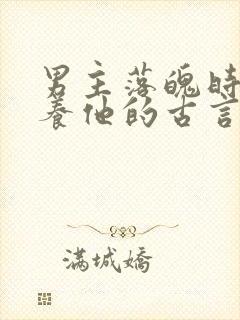 男主落魄時
養他的古言
滿城嬌